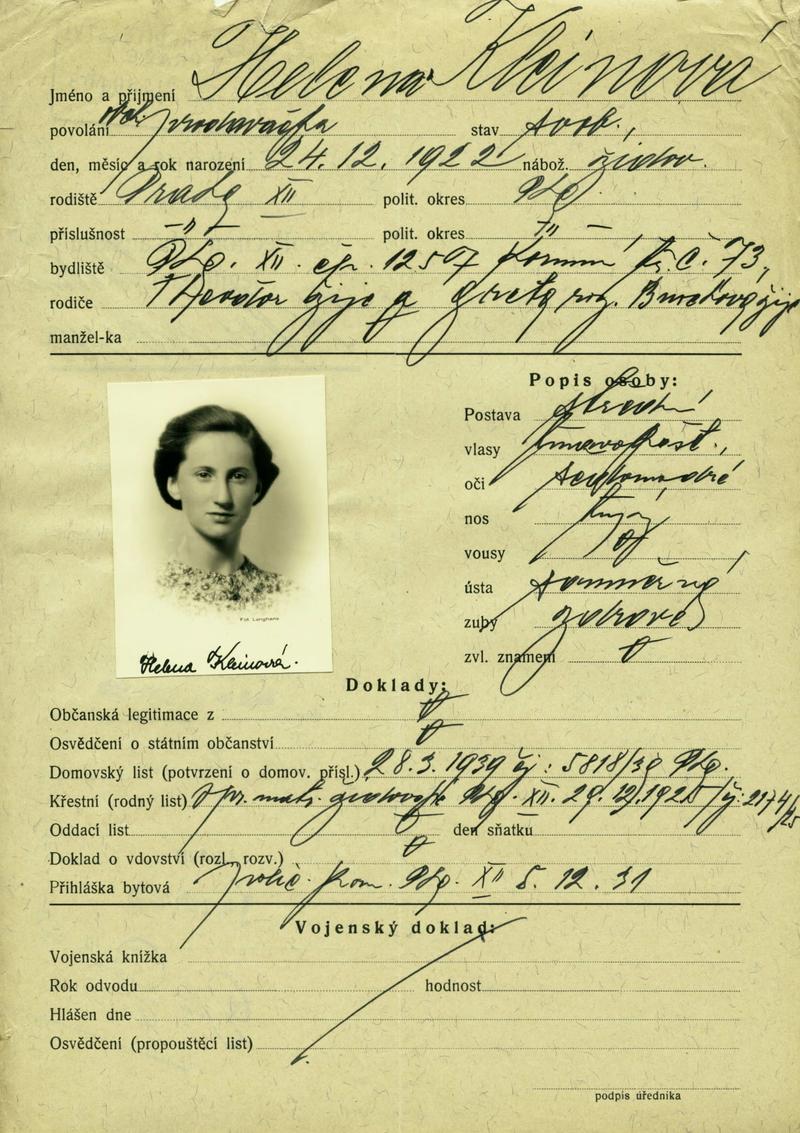 Jméno a příjmení Helena Kleinová
povolání obch. prodavačka stav svob.,
den, měsíc a rok narození 24.12.1922 nábož. židov.
rodiště Praha XII polit. okres
příslušnost —"— polit. okres —"—
bydliště XII. čp. 1250 č. 73,
rodiče Theodor žije a Greta roz. žije
manžel-ka
Popis osoby:
Postava střední
vlasy tmavokašt.,
oči šedomodré
nos
vousy
ústa souměrná
zuby zdravé
zvl. znamení
Fot. Langhans
Helena Kleinová.
Doklady:
Občanská legitimace z
Osvědčení o státním občanství
Domovský list (potvrzení o domov. přísl.) 28.3.1939 čj: 5818/39
Křestní (rodný list) matr. XII.
Oddací list den sňatku
Doklad o vdovství (rozl., rozv.)
Přihláška bytová polic. kom. XII 5.12.31
Vojenský doklad:
Vojenská knížka
Rok odvodu hodnost
Hlášen dne
Osvědčení (propouštěcí list)
podpis úředníka